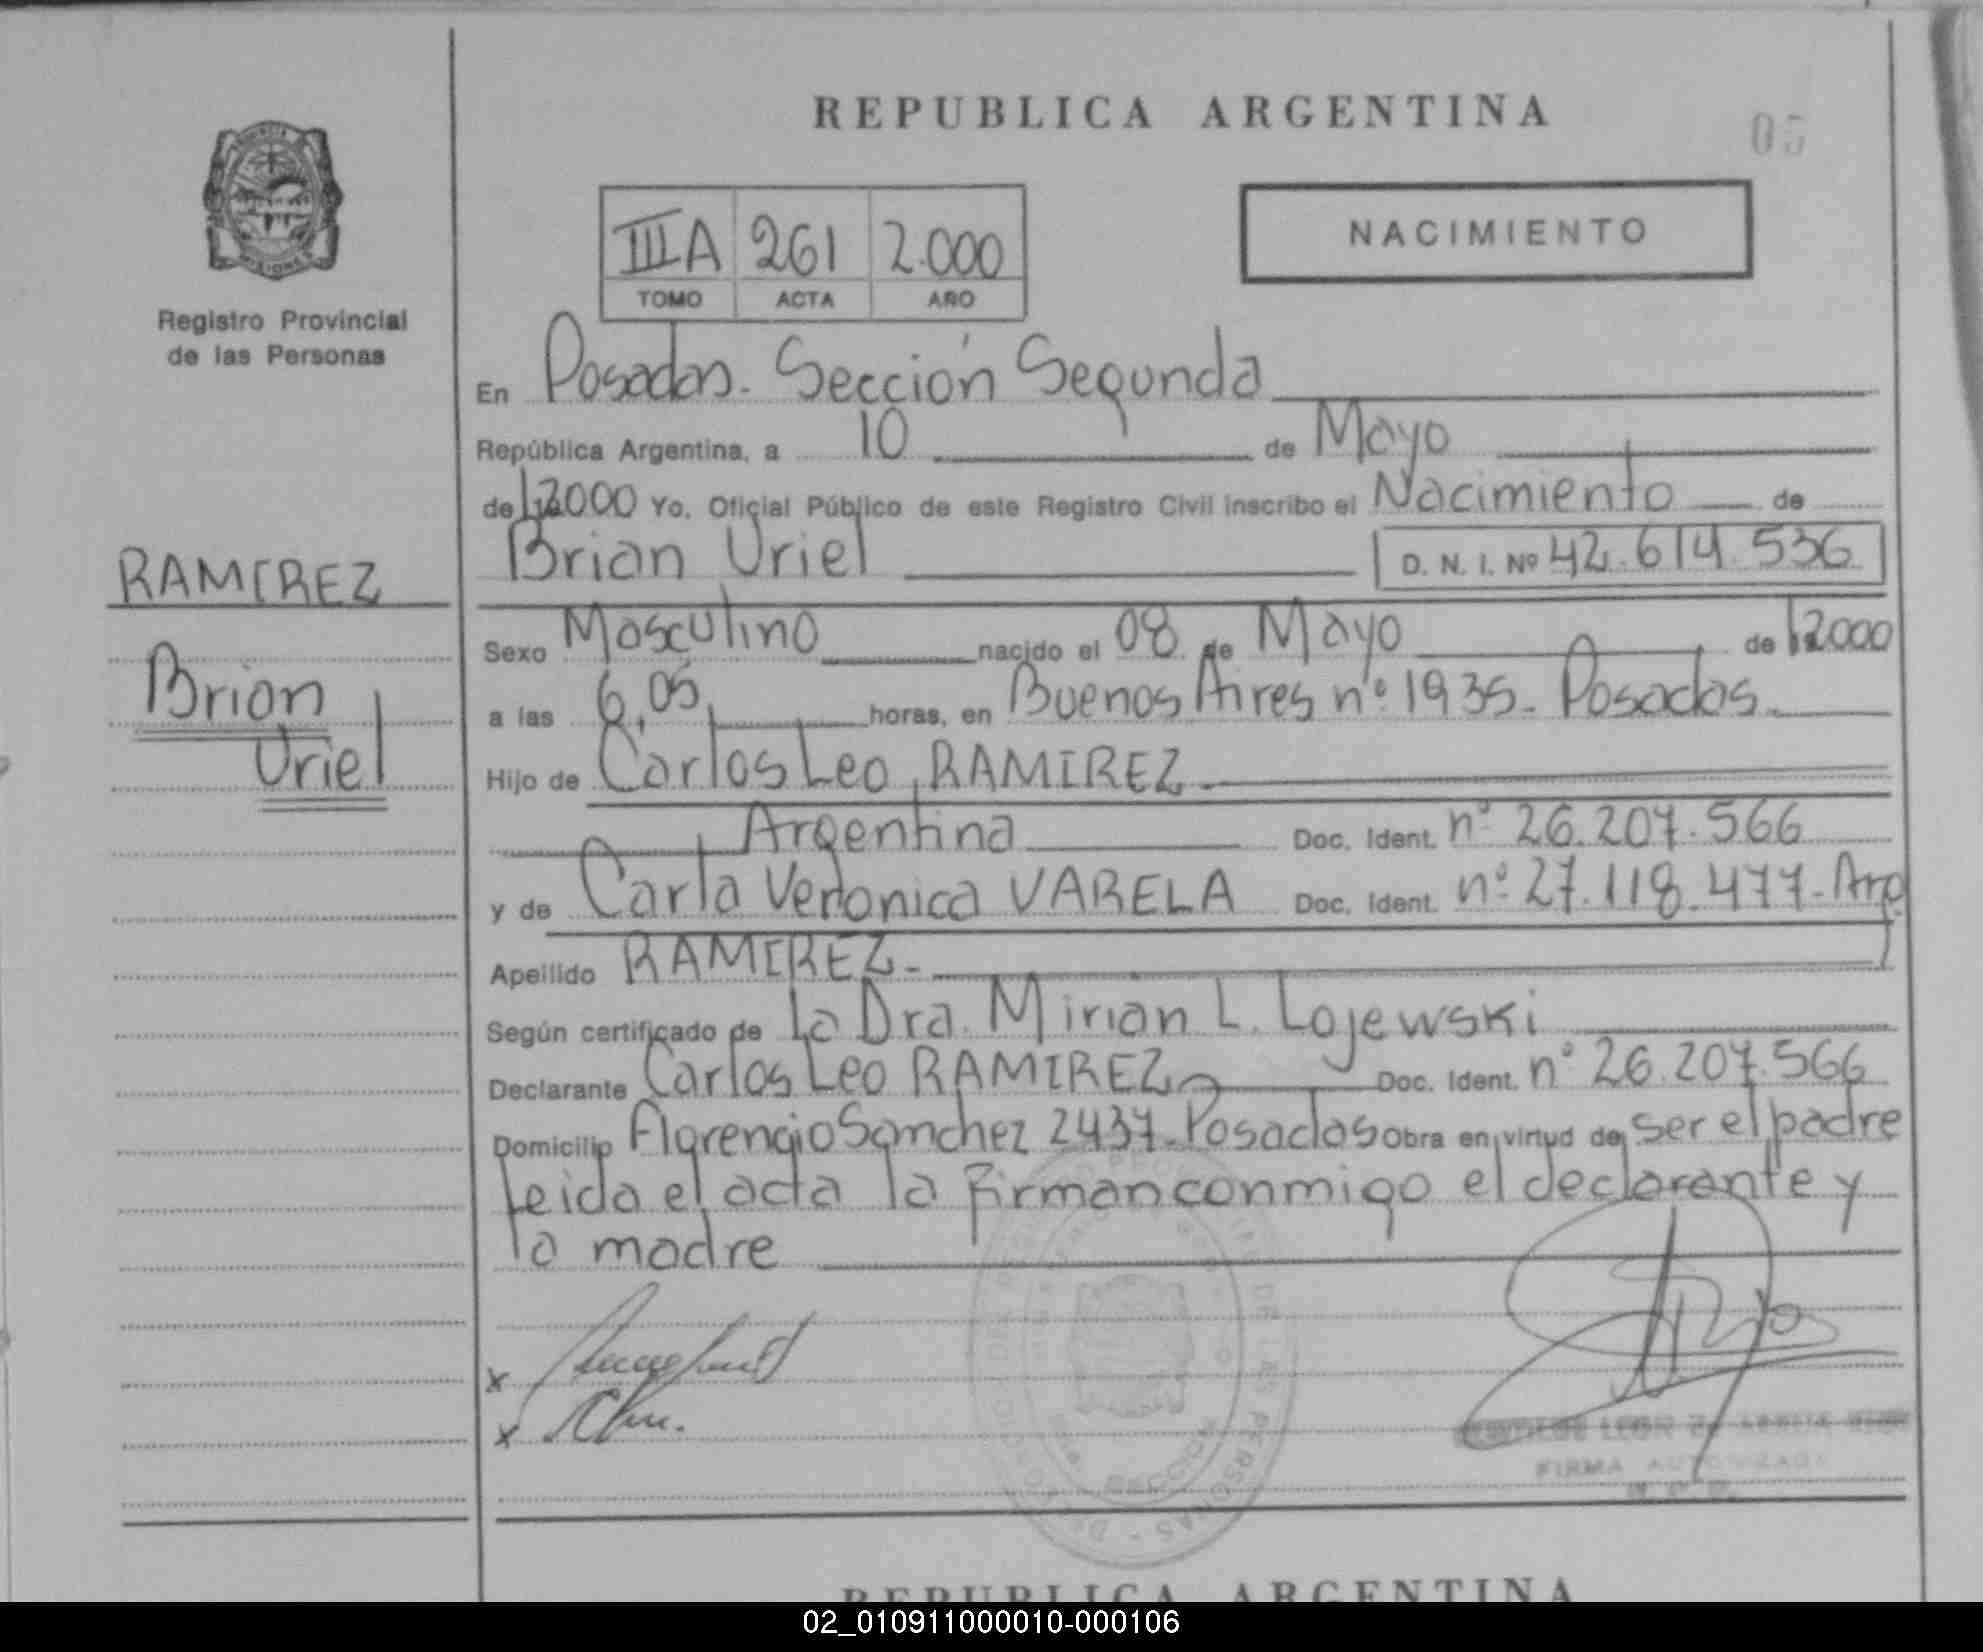 REPUBLICA ARGENTINA
05
NACIMIENTO
IIIA 261 2.000
TOMO ACTA AÑO
MISIONES
Registro Provincial
de las Personas
En Posadas. Sección Segunda
República Argentina, a 10 de Mayo
de 2000 Yo, Oficial Público de este Registro Civil inscribo el Nacimiento de
Brian Uriel D. N. I. Nº 42.614.536
RAMIREZ
Brian
Uriel
Sexo Masculino nacido el 08 de Mayo de 2000
a las 6,05 horas, en Buenos Aires nº 1935. Posadas.
Hijo de Carlos Leo RAMIREZ
Argentina Doc. Ident. nº 26.207.566
y de Carla Veronica VARELA Doc. Ident. nº 27.118.477-Arg
Apellido RAMIREZ.
Según certificado de la Dra. Mirian L. Lojewski
Declarante Carlos Leo RAMIREZ Doc. Ident. nº 26.207.566
Domicilio Florencio Sanchez 2437. Posadas Obra en virtud de ser el padre
Leida el acta la firman conmigo el declarante y
la madre
x
x
FIRMA AUTORIZADA
REPUBLICA ARGENTINA
02_010911000010-000106